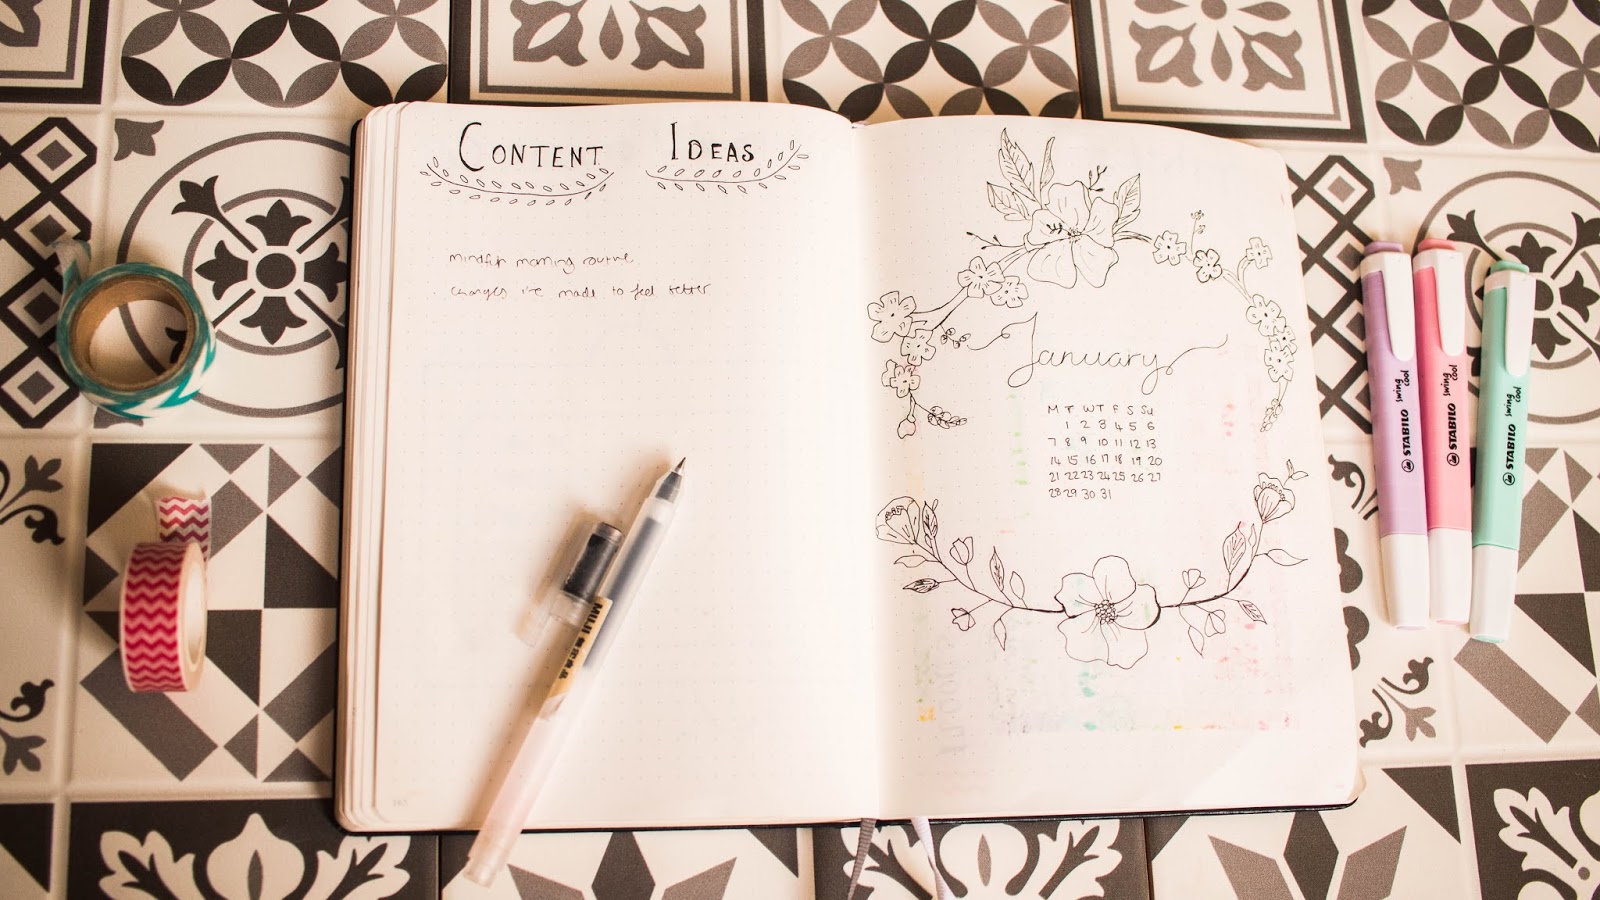 CONTENT IDEAS
mindful morning routine
changes i've made to feel better
January
M T W T F S Su
1 2 3 4 5 6
7 8 9 10 11 12 13
14 15 16 17 18 19 20
21 22 23 24 25 26 27
28 29 30 31
MUJI
STABILO swing cool
STABILO swing cool
STABILO swing cool